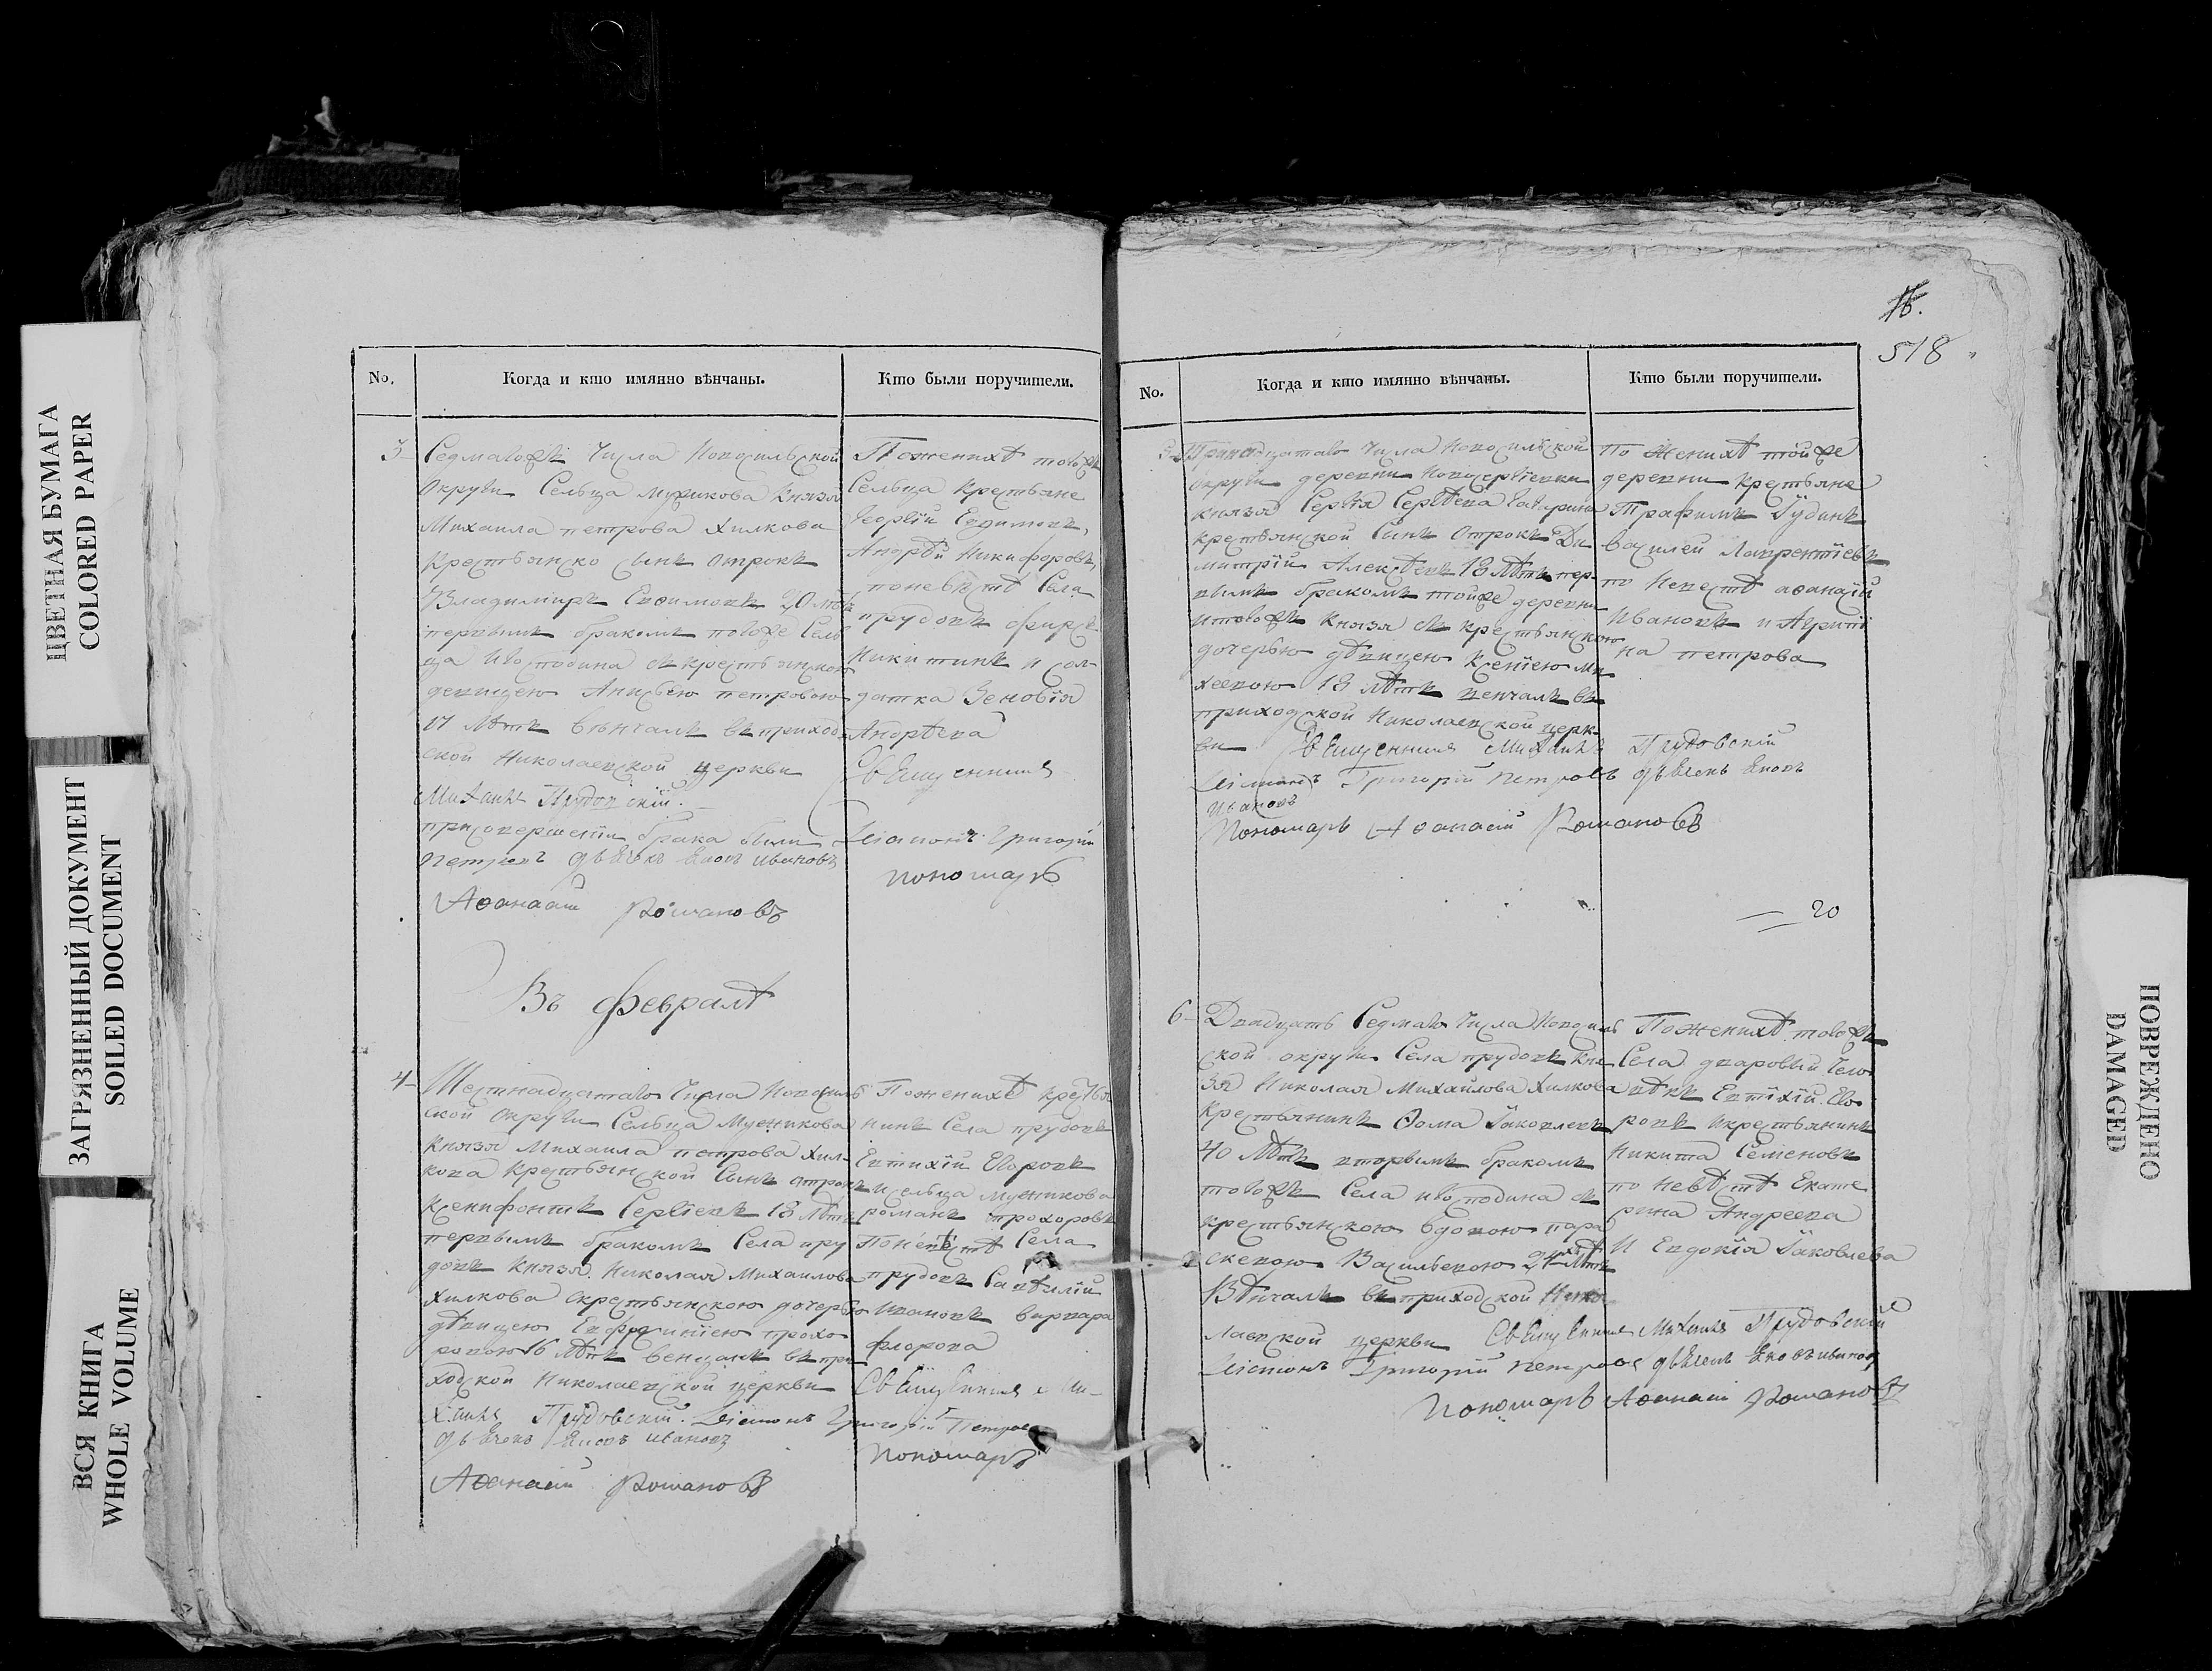 ЦВЕТНАЯ БУМАГА
COLORED PAPER
ЗАГРЯЗНЕННЫЙ ДОКУМЕНТ
SOILED DOCUMENT
ВСЯ КНИГА
WHOLE VOLUME
No.
Когда и кто имянно вѣнчаны.
Кто были поручители.
3
Седмагожъ Числа Новосильской
Округи Сельца Князя
Михаила петрова Хилкова
Крестьянско сынъ отрокъ
Владимиръ Евфимовъ 20 лѣтъ
первымъ бракомъ тогоже Сель
ца игосподина съ крестьянскою
девицею Анисьею петровою
17 лѣтъ вѣнчалъ въ приход
ской Николаевской церкви
Михаилъ Прудовскій.
присовершеніи брака были
Петровъ дьячекъ Іаковъ Ивановъ
Аѳанасій Романовъ
Поженихѣ тогожъ
Сельца крестьяне
Георгій Евдимовъ,
Андрѣй Никифоровъ,
поневѣстѣ Села
прудовъ Фирсъ
Никитинъ и сол
датка Зеновія
Андрѣева
Священникъ
Діаконъ Григорій
пономарь
Въ февралѣ
4
Шестнадцатаго Числа Новосиль
ской Округи Сельца Мусникова
Князя Михаила петрова Хил-
кова Крестьянской Сынъ отрокъ
Ксенифонтъ Сергіевъ 18 лѣтъ
первымъ бракомъ Села пру
довъ Князя Николая Михаилова
Хилкова скрестьянскою дочерью
дѣвицею Евфросиніею прохо
ровою 16 лѣтъ венчалъ въ при
ходской Николаевской церкви
хаилъ Прудовскій. Діаконъ Григорій Петровъ
дьячекъ Іаковъ Ивановъ
Аѳанасій Романовъ
Поженихѣ крестья
нинъ Села прудовъ
Евтихій Егоровъ
исельца Мусникова
романъ прохоровъ
Поневѣстѣ Села
прудовъ Савѣлій
Ивановъ варвара
флорова
Священникъ Ми-
пономарь
16.
518
No.
Когда и кто имянно вѣнчаны.
Кто были поручители.
5
Тринадцатаго числа Новосильской
округи деревни Новосергіевки
князя Сергѣя Сергѣева Гагарина
крестьянской Сынъ отрокъ Ди
митрій Алексѣевъ 18 лѣтъ пер-
вымъ бракомъ тойже деревни
итогожъ Князя съ крестьянскою
дочерью дѣвицею Ксеніею Ми
хеевою 18 лѣтъ венчалъ въ
приходской Николаевской церк-
ви Священникъ Михаилъ Прудовскій
Діаконъ Григорій Петровъ дьячекъ Іаковъ
Ивановъ
Пономарь Аѳанасій Романовъ
По Женихѣ тойже
деревни крестьяне
Трафимъ Іудинъ
василей Лаврентіевъ
по Невестѣ аѳанасій
Ивановъ и Агрипи
на петрова
20
6
Двадцать Седмаго Числа Новосиль
ской округи Села прудовъ Кня
зя Николая Михайлова Хилкова
Крестьянинъ Ѳома Іаковлевъ
40 лѣтъ вторымъ бракомъ
тогожъ Села игосподина съ
крестьянскою вдовою пара
скевою Васильевою 24 лѣтъ
Вѣнчалъ въ приходской Нико
лаевской церкви Священникъ Михаилъ Прудовскій
Діаконъ Григорій Петровъ дьячекъ Іаковъ Ивановъ
Пономарь Аѳанасій Романовъ
Поженихѣ тогожъ
Села дваровый Чело
вѣкъ Евтіхій Его
ровъ икрестьянинъ
Никита Семеновъ
по невѣстѣ Екате
рина Андреева
и Евдокія Іаковлева
ПОВРЕЖДЕНО
DAMAGED